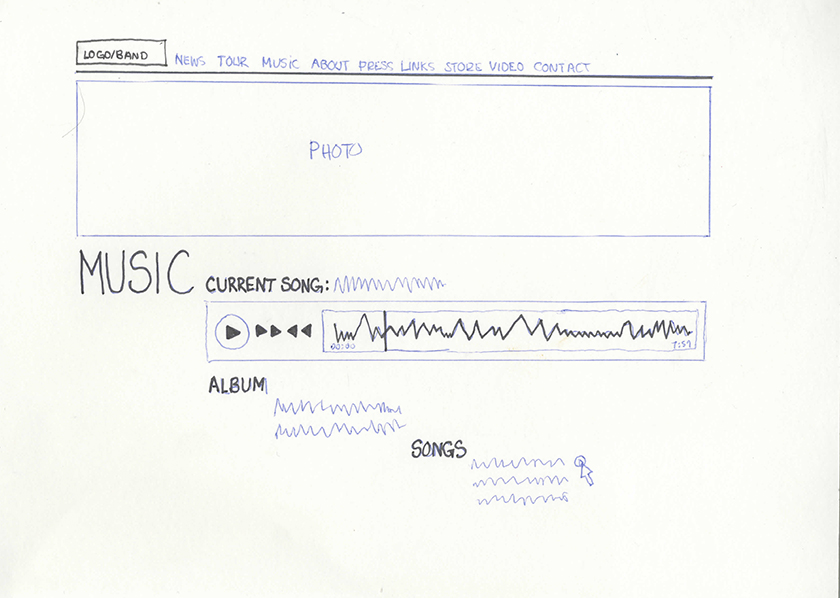 LOGO/BAND NEWS TOUR MUSIC ABOUT PRESS LINKS STORE VIDEO CONTACT
PHOTO
MUSIC
CURRENT SONG:
00:00 7:57
ALBUM
SONGS